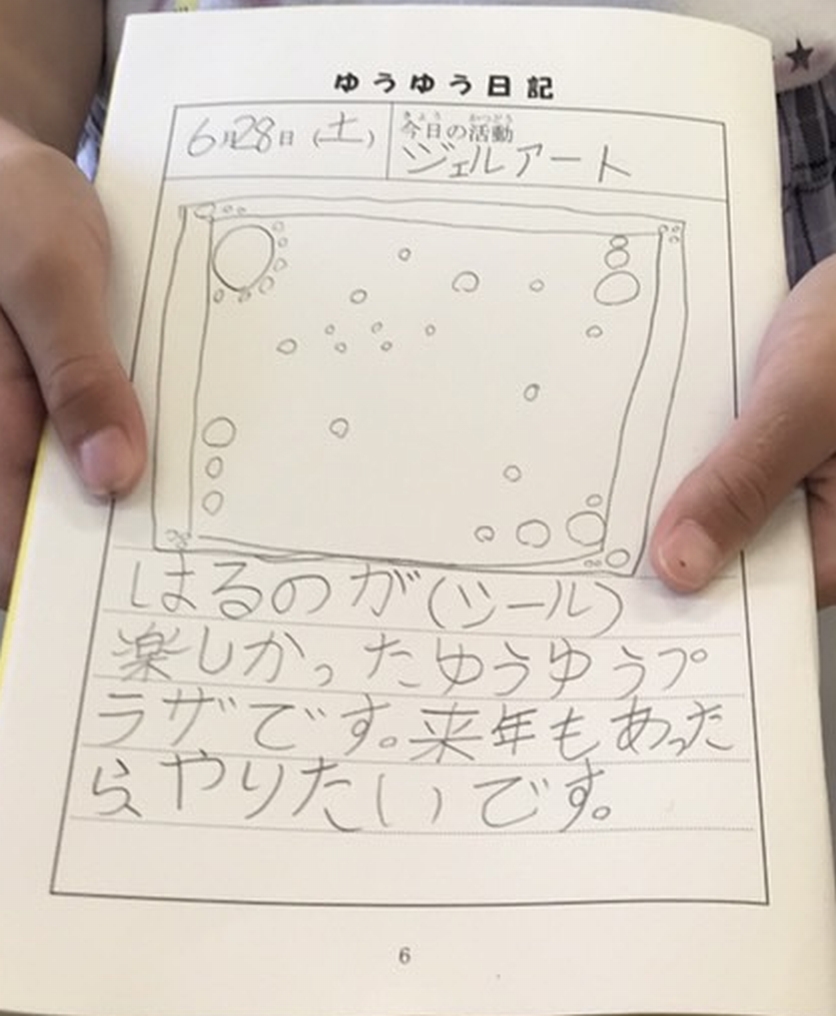 ゆうゆう日記
6月28日(土)
きょう かつどう
今日の活動
ジェルアート
はるのが(ツール)
楽しかったゆうゆうプ
ラザです。来年もあった
らやりたいです。
6